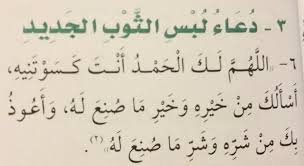 ٣ - دُعَاءُ لُبْسِ الثَّوْبِ الْجَدِيدِ
٦- «اللَّهُمَّ لَكَ الْحَمْدُ أَنْتَ كَسَوْتَنِيهِ،
أَسْأَلُكَ مِنْ خَيْرِهِ وَخَيْرِ مَا صُنِعَ لَهُ، وَأَعُوذُ
بِكَ مِنْ شَرِّهِ وَشَرِّ مَا صُنِعَ لَهُ»(٢).